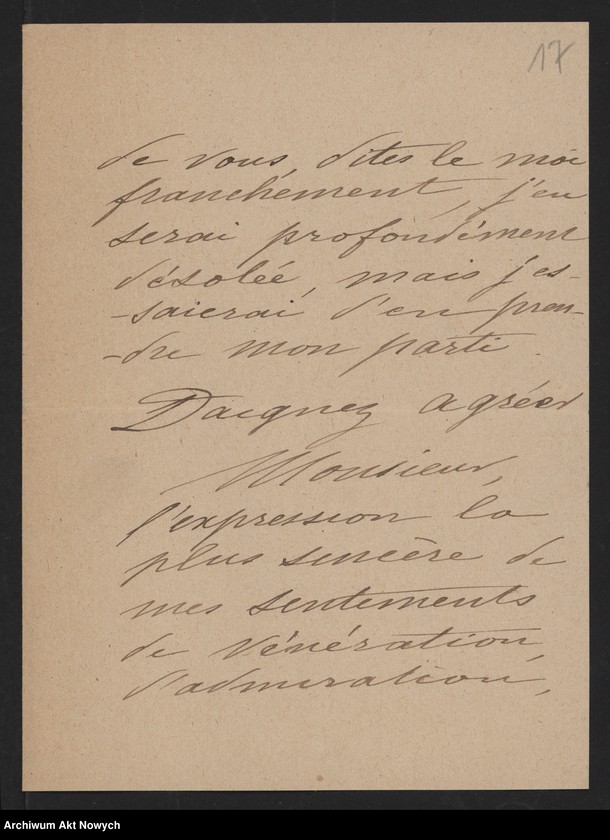 17
de vous, dites le moi
franchement, j'en
serai profondément
désolée, mais j'es-
-saierai d'en pren-
-dre mon parti.
Daignez agréer
Monsieur,
l'expression la
plus sincère de
mes sentements
de vénération,
d'admiration,
Archiwum Akt Nowych